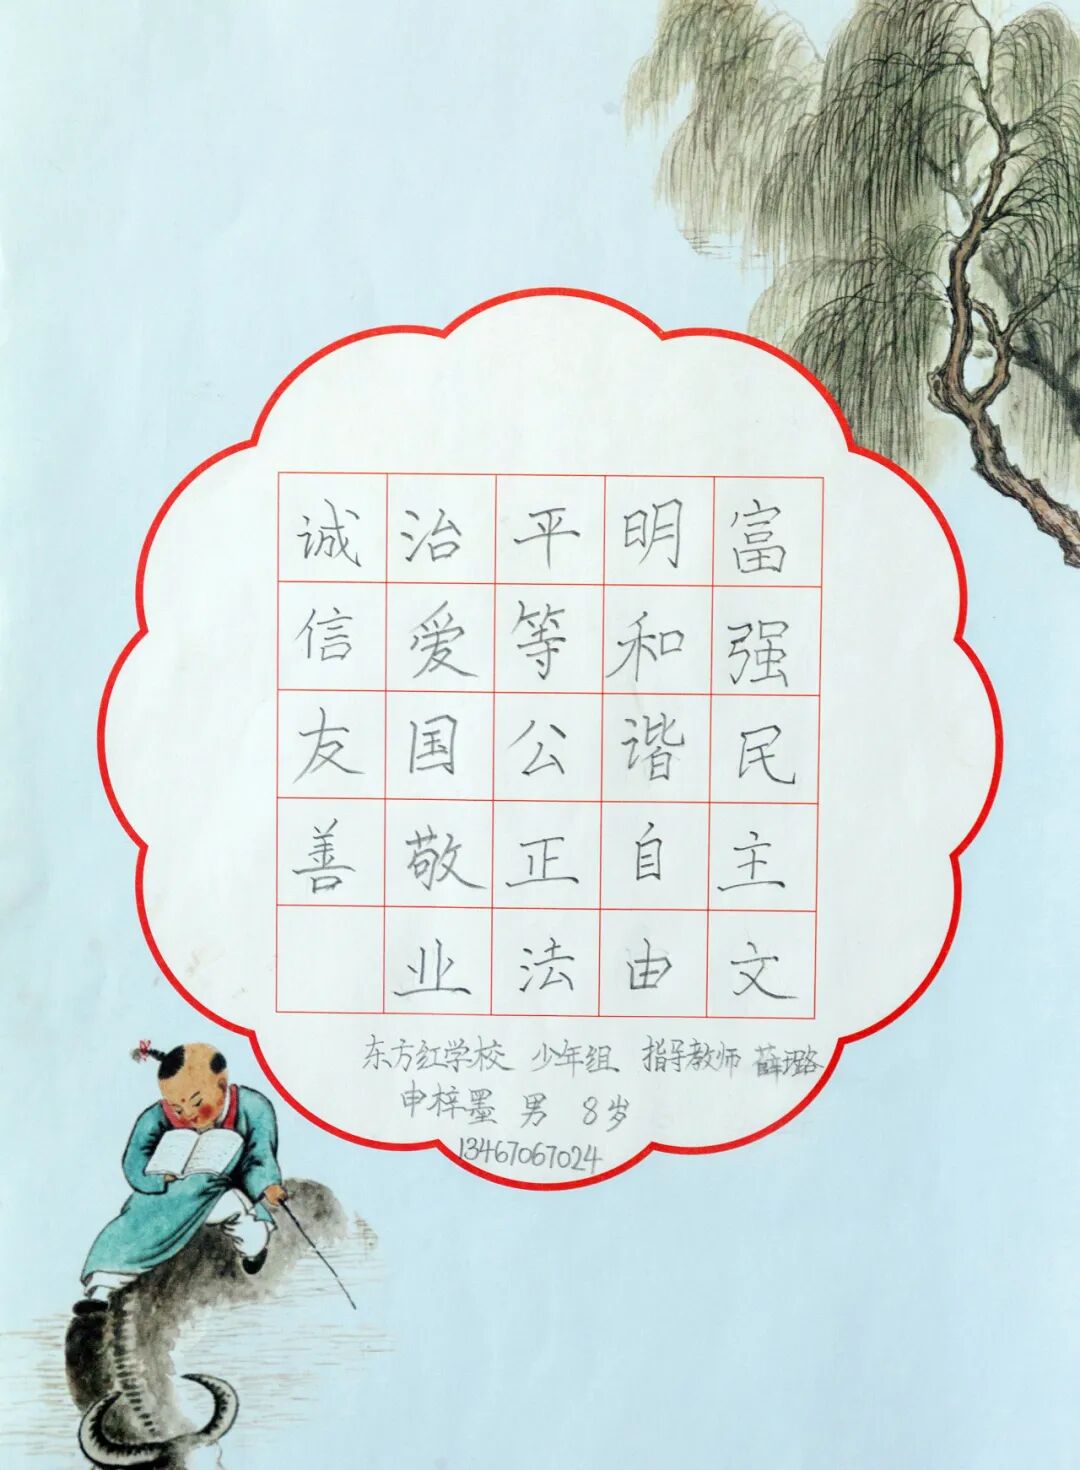 富强民主文
明和谐自由
平等公正法
治爱国敬业
诚信友善
东方红学校 少年组 指导教师 薛璐
申梓墨 男 8岁
13467067024